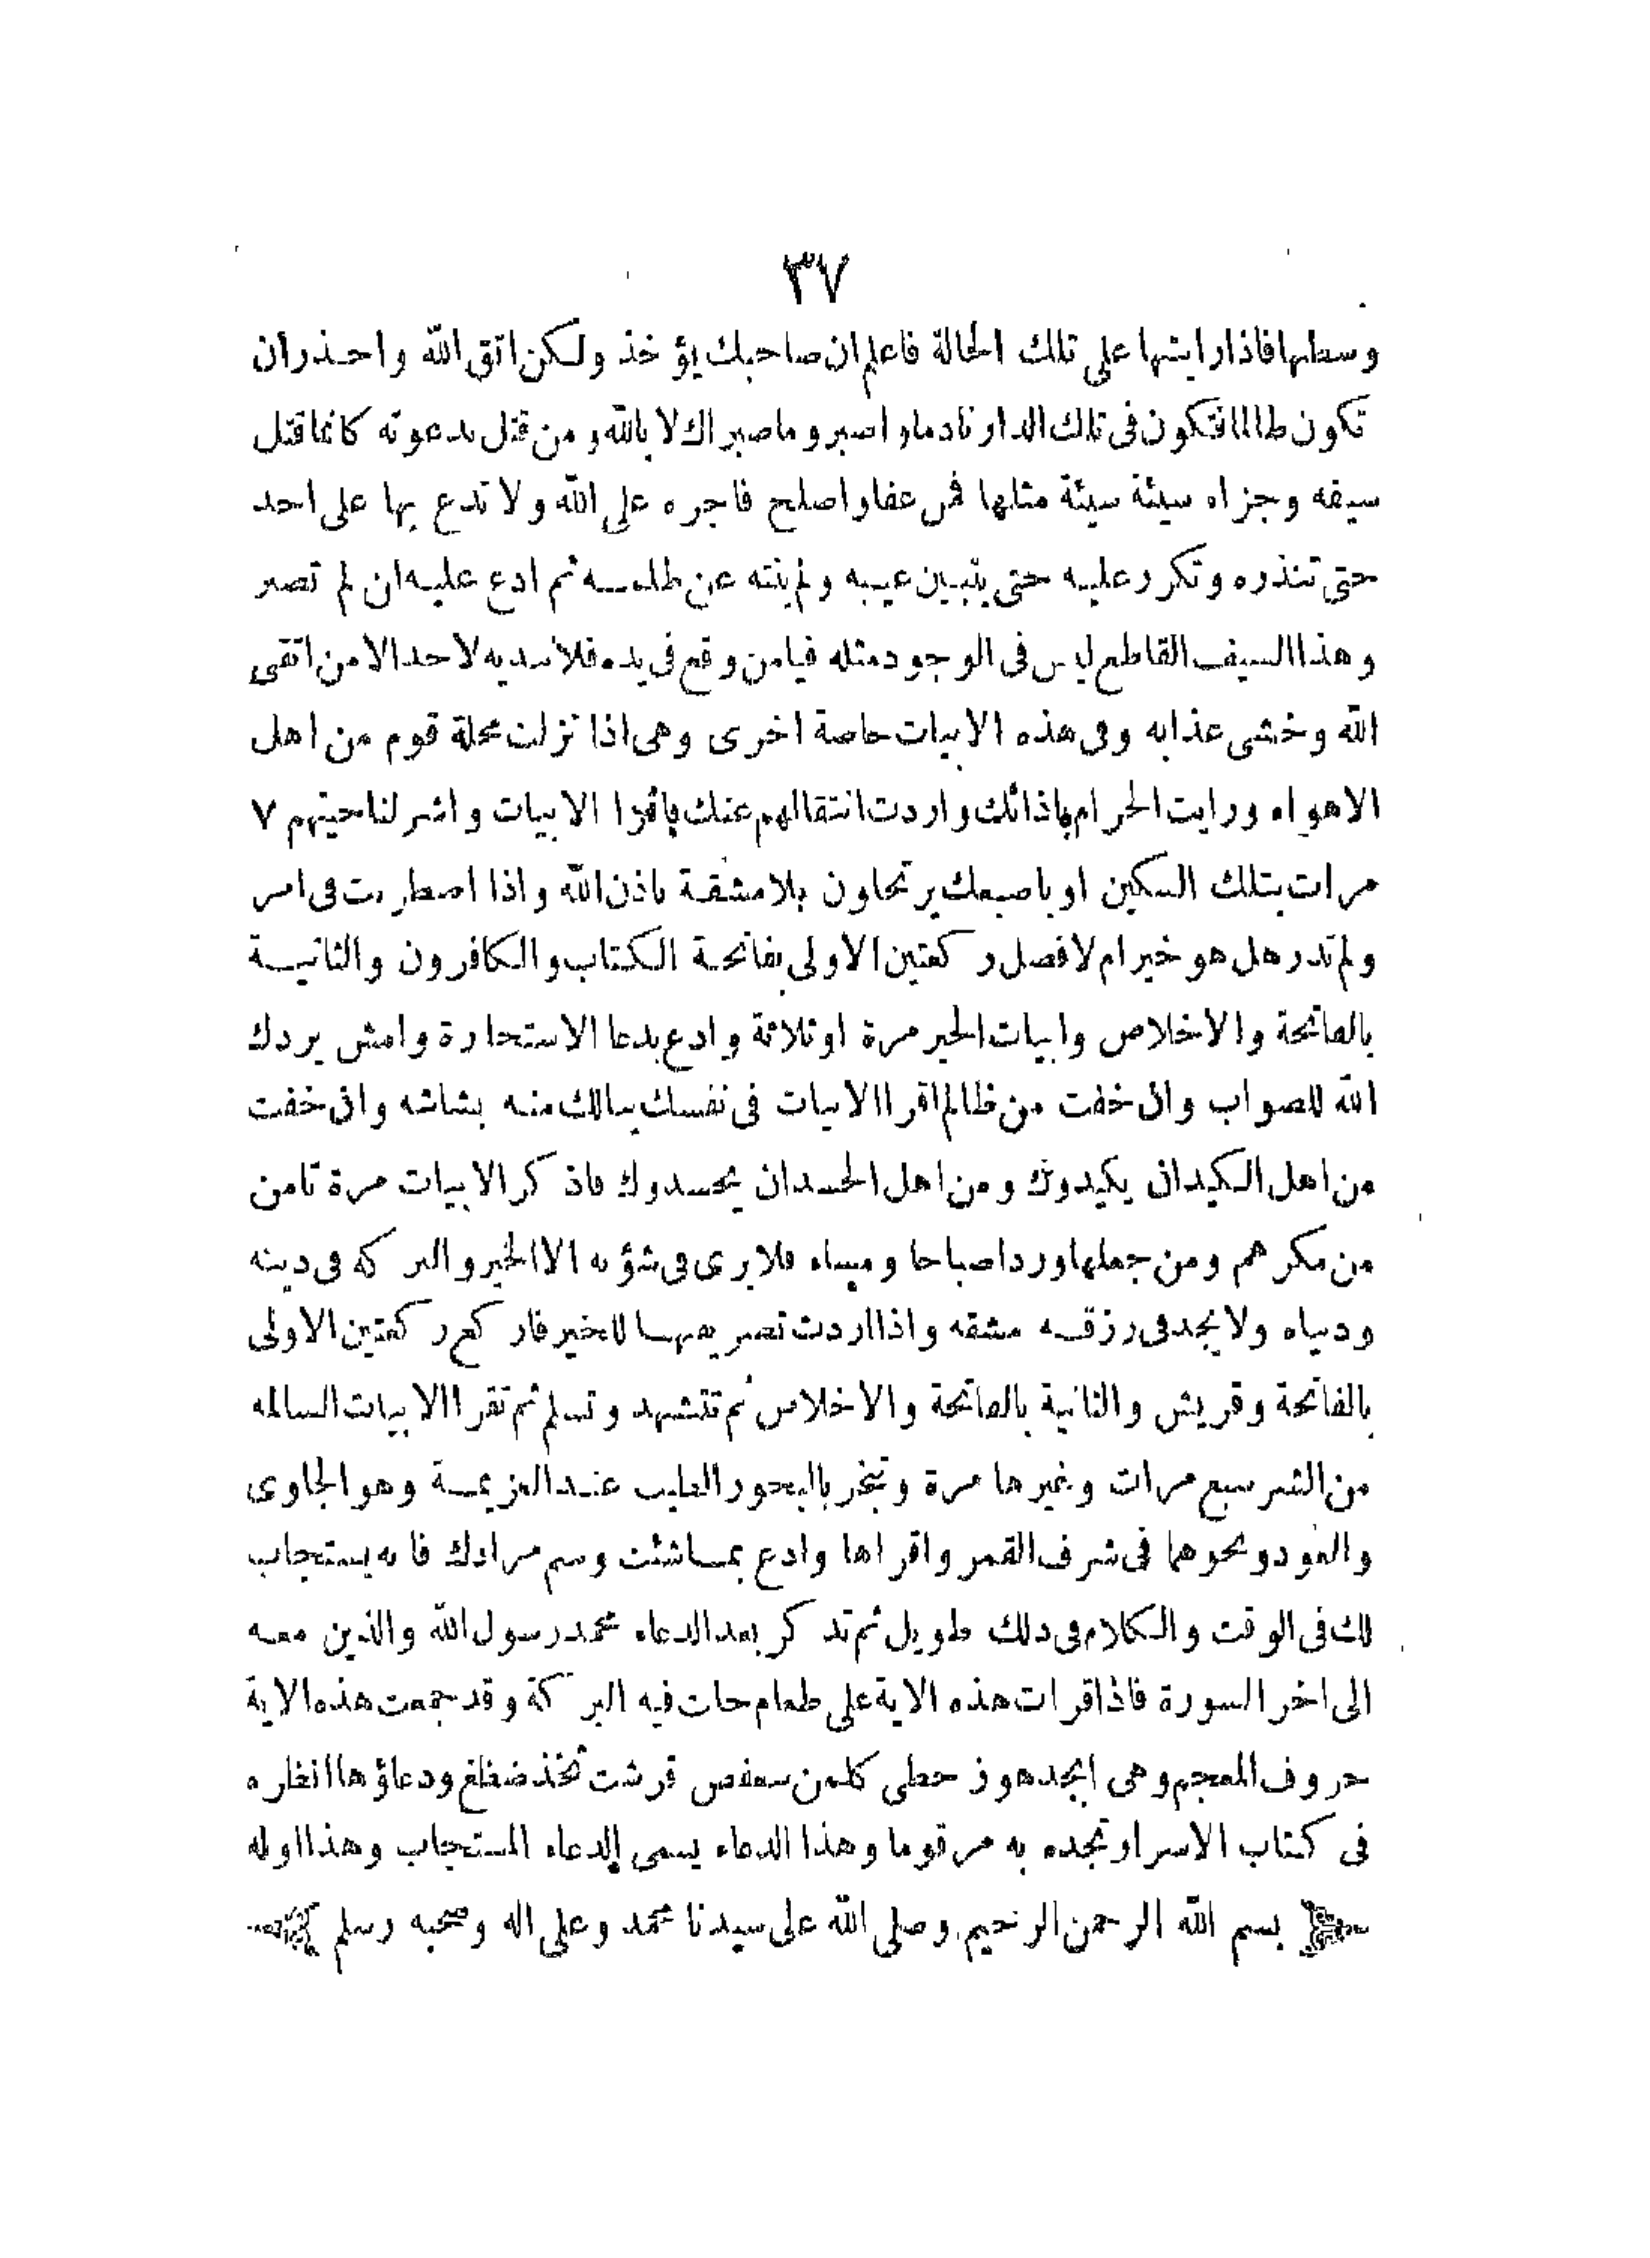 ٣٧
وسطها فاذا رايتها على تلك الحالة فاعلم ان صاحبك يؤخذ ولكن اتق الله واحذر ان
تكون ظالما فتكون فى تلك الدار نادما واصبر وما صبراك لا بالله ومن قتل بدعوته كانما قتل
سيفه وجزاه سيئة سيئة مثلها فمن عفا واصلح فاجره على الله ولا تدع بها على احد
حتى تنذره وتكرر عليه حتى يتبين عيبه ولم ينته عن ظلمه ثم ادع عليه ان لم تصبر
وهذا السيف القاطع ليس فى الوجود مثله فيامن وقع فى يده فلا تبديه لاحد الا من اتقى
الله وخشى عذابه وفى هذه الابيات خاصة اخرى وهى اذا نزلت محلة قوم من اهل
الاهواء ورايت الحرام واردت انتقالهم عنك الابيات واشر لناحيتهم ٧
مرات بتلك السكين او باصبعك يرتحلون بلا مشقة باذن الله واذا اضطربت فى امر
ولم تدر هل هو خير ام لا فصل ركعتين الاولى بفاتحة الكتاب والكافرون والثانية
بالفاتحة والاخلاص وابيات الخير مرة او ثلاثة وادع بدعا الاستخارة وامش يردك
الله للصواب وان خفت من ظالم اقرا الابيات فى نفسك ينالك منه بشاشه وان خفت
من اهل الكيد ان يكيدوك ومن اهل الحسد ان يحسدوك فاذكر الابيات مرة تامن
من مكرهم ومن جعلها وردا صباحا ومساء فلا يرى فى شؤنه الا الخير والبركه فى دينه
ودنياه ولا يجد فى رزقه مشقه واذا اردت تصريفها للخير فاركع ركعتين الاولى
بالفاتحة وقريش والثانية بالفاتحة والاخلاص ثم تتشهد وتسلم ثم تقرا الابيات السالمه
من الشر سبع مرات وغيرها مرة وتبخر بالبخور الطيب عند العزيمة وهو الجاوى
والعود ونحوهما فى شرف القمر واقراها وادع بما شئت وسم مرادك فانه يستجاب
لك فى الوقت والكلام فى ذلك طويل ثم تذكر بعد الدعاء محمد رسول الله والذين معه
الى اخر السورة فاذا قرات هذه الاية على طعام حلت فيه البركة وقد جمعت هذه الاية
حروف المعجم وهى ابجد هوز حطى كلمن سعفص قرشت ثخذ ضظغ ودعاؤها انظره
فى كتاب الاسرار تجده به مرقوما وهذا الدعاء يسمى الدعاء المستجاب وهذا اوله
بسم الله الرحمن الرحيم وصلى الله على سيدنا محمد وعلى اله وصحبه وسلم